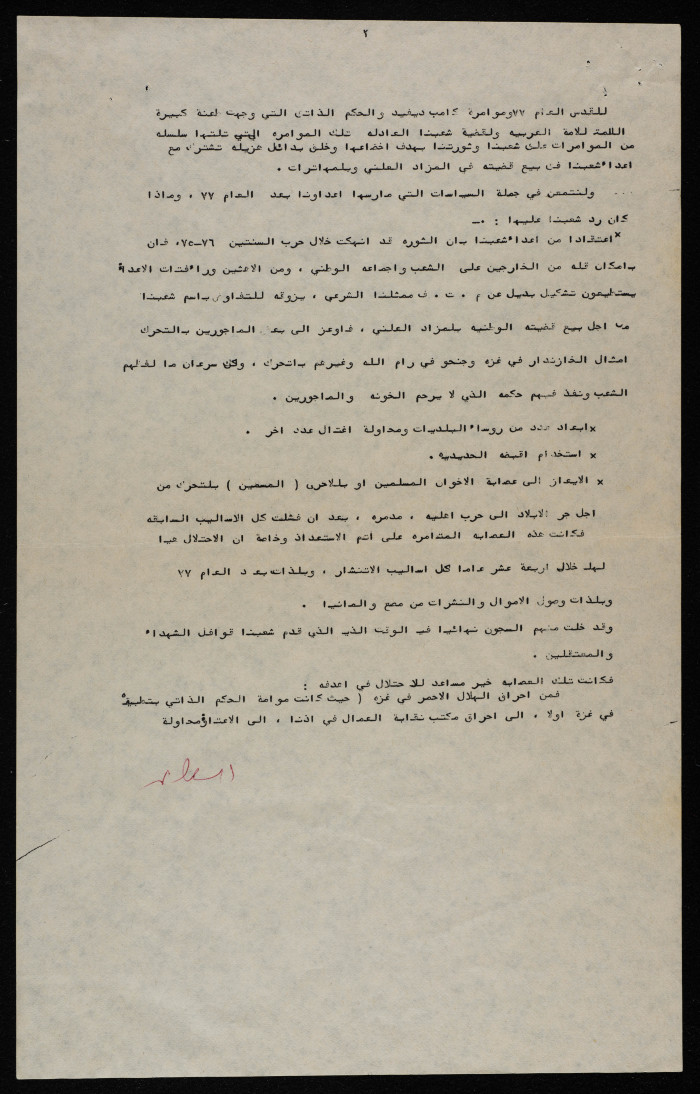 ٢
للقدس العام ٧٧ وموامرة كامب ديفيد والحكم الذاتي التي وجهت لعنة كبيرة
اللمة للامة العربيه ولقضية شعبنا العادله تلك الموامره التي تلتها سلسله
من الموامرات على شعبنا وثورتنا بهدف اخضاعها وخلق بدائل هزيله تشترك مع
اعداء شعبنا في بيع قضيته في المزاد العلني وبلمهاترات .
ولنتمعن في جملة السياسات التي مارسها اعداونا بعد العام ٧٧ ، وماذا
كان رد شعبنا عليها : ـ
* اعتقادا من اعداء شعبنا بان الثوره قد انهكت خلال حرب السنتين ٧٦-٧٥ ، فان
بامكان قله من الخارجين على الشعب واجماعه الوطني ، ومن الاعثين ورا فتات الاعداء
يستطيعون تشكيل بديل عن م . ت . ف ممثلنا الشرعي ، يزوقه للتفاوض باسم شعبنا
من اجل بيع قضيته الوطنيه بلمزاد العلني ، فاوعز الى بعض الماجورين بالتحرك
امثال الخازندار في غزه وجنحو في رام الله وغيرهم باتحرك ، ولكن سرعان ما لفظهم
الشعب ونفذ فيهم حكمه الذي لا يرحم الخونه والماجورين .
× ابعاد عدد من روساء البلديات ومحاولة اغتال عدد اخر .
× استخدام اقبضه الحديديه .
× الايعاز الى عصابة الاخوان المسلمين او بللاحرى ( المسعين ) بلتحرك من
اجل جر الابلاد الى حرب اهليه ، مدمره ، بعد ان فشلت كل الاساليب السابقه
فكانت هذه العصابه المتامره على اتم الاستعداد وخاصة ان الاحتلال هيا
لها خلال اربعة عشر عاما كل اساليب الاتنشار ، وبلذات بعد العام ٧٧
وبلذات وصول الاموال والنشرات من مصر والمانيا .
وقد خلت منهم السجون نهائيا في الوقت الذي قدم شعبنا قوافل الشهداء
والمعتقلين .
فكانت تلك العصابه خير مساعد للاحتلال في اهدفه :
فمن احراق الهلال الاحمر في غزه ( حيث كانت موامة الحكم الذاتي بتطبيقه
في غزة اولا ، الى احراق مكتب نقابة العمال في اذنا ، الى الاعتداء ومحاولة